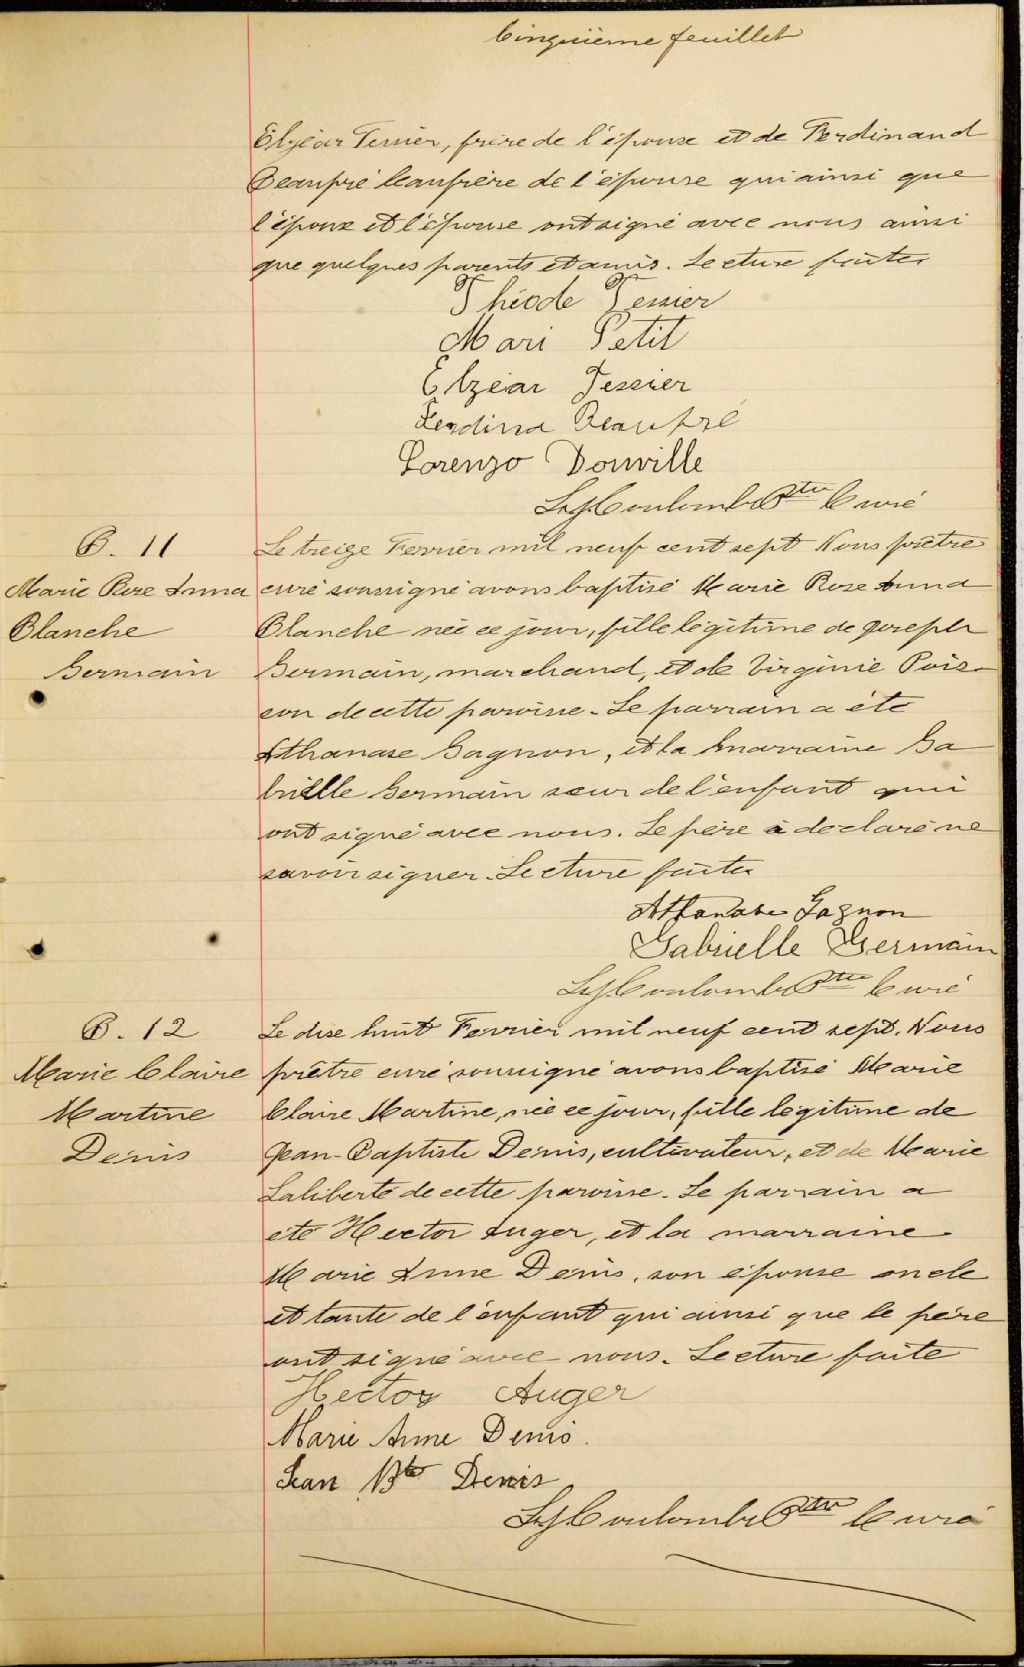 Cinquième feuillet
Elzéar Tessier, frère de l'épouse et de Ferdinand
Beaupré beaufrère de l'épouse qui ainsi que
l'époux et l'épouse ont signé avec nous ainsi
que quelques parents et amis. Lecture faite.
Théode Tessier
Mari Petit
Elzéar Tessier
Ferdina Beaupré
Lorenzo Douville
Coulombe Ptre Curé
B. 11
Le treize Fevrier mil neuf cent sept Nous prêtre
Marie Rose Anna
curé soussigné avons baptisé Marie Rose Anna
Blanche
Blanche née ce jour, fille légitime de Joseph
Germain
Germain, marchand, et de Virginie Pois-
son de cette paroisse. Le parrain a été
Athanase Gagnon, et la marraine Ga
brielle Germain sœur de l'enfant qui
ont signé avec nous. Le père a declaré ne
savoir signer. Lecture faite
Athanase Gagnon
Gabrielle Germain
Coulombe Ptre Curé
B. 12
Le dix huit Fevrier mil neuf cent sept. Nous
Marie Claire
prêtre curé soussigné avons baptisé Marie
Martine
Claire Martine, née ce jour, fille légitime de
Denis
Jean-Baptiste Denis, cultivateur, et de Marie
Laliberté de cette paroisse. Le parrain a
été Hector Auger, et la marraine
Marie Anne Denis, son épouse oncle
et tante de l'enfant qui ainsi que le père
ont signé avec nous. Lecture faite
Hector Auger
Marie Anne Denis.
Jean Bte Denis
Coulombe Ptre Curé